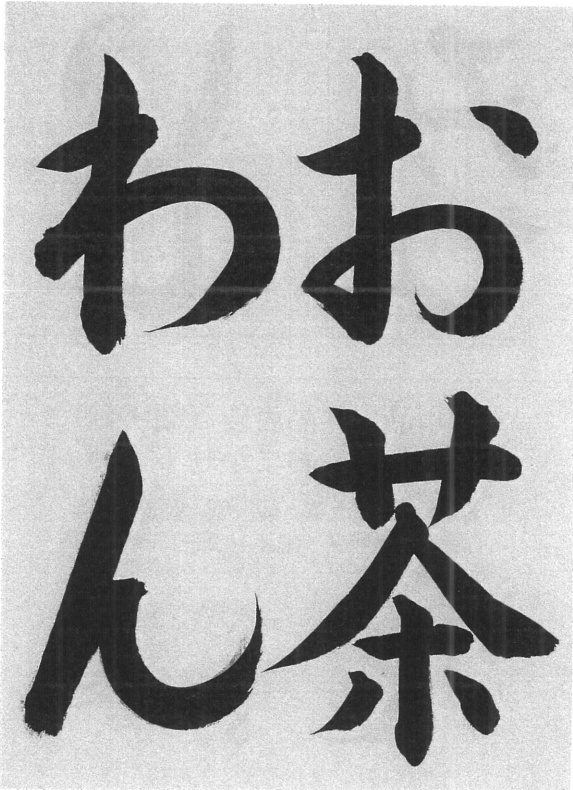 お茶
わん